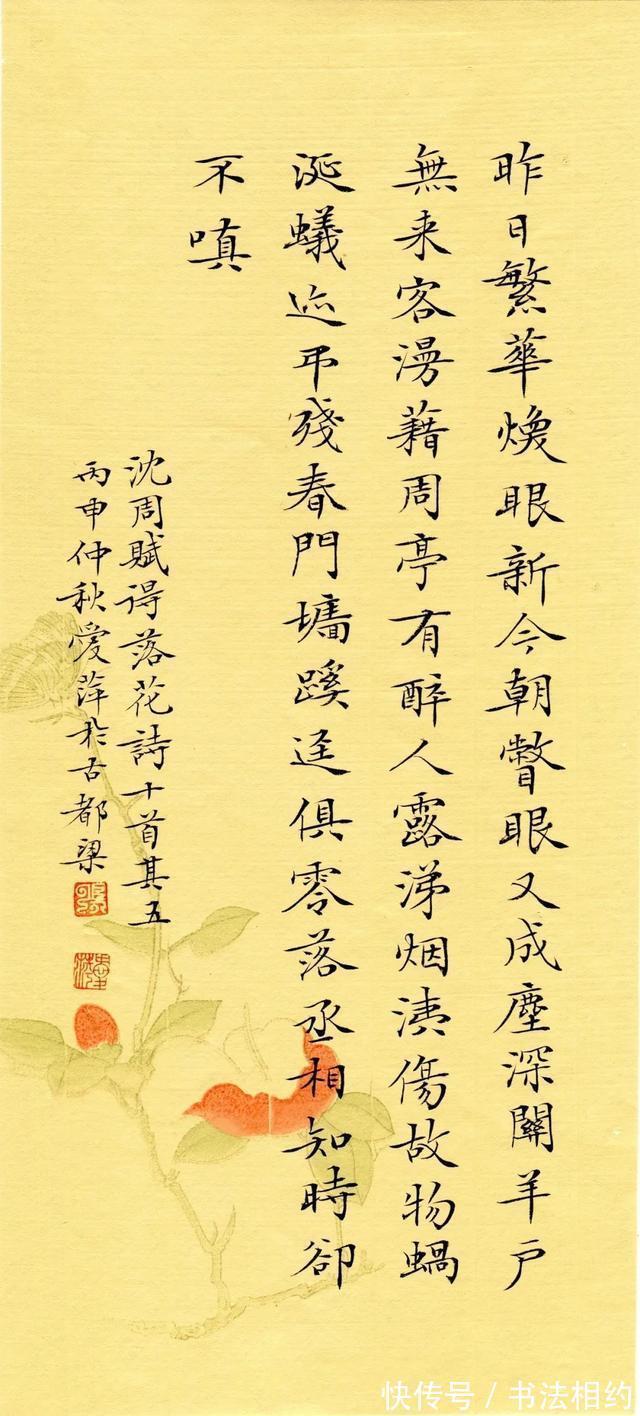 昨日繁華煥眼新今朝瞥眼又成塵深關羊戶
無来客漫藉周亭有醉人露涕烟洟傷故物蝸
涎蟻迹弔殘春門墻蹊迳俱零落丞相知時卻
不嗔
沈周賦得落花詩十首其五
丙申仲秋愛萍於古都梁
快传号 / 书法相约